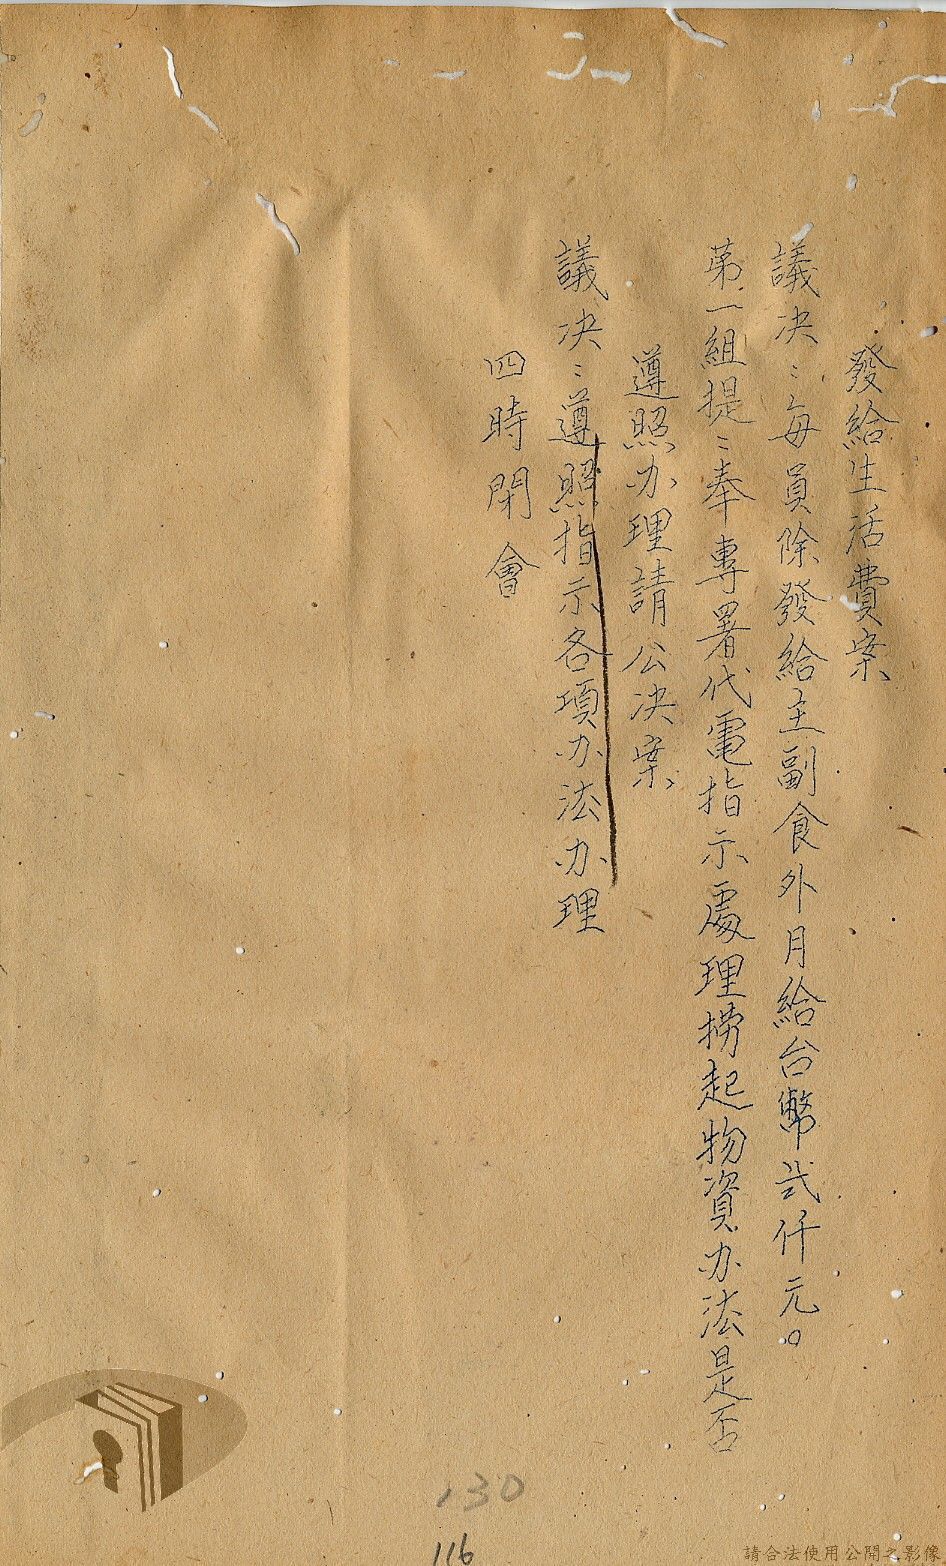 發給生活費案
議决：每員除發給主副食外月給台幣弍仟元。
苐一組提：奉專署代電指示處理撈起物資办法是否
遵照办理請公决案
議决：遵照指示各項办法办理
四時閉會
130
116
請合法使用公開之影像